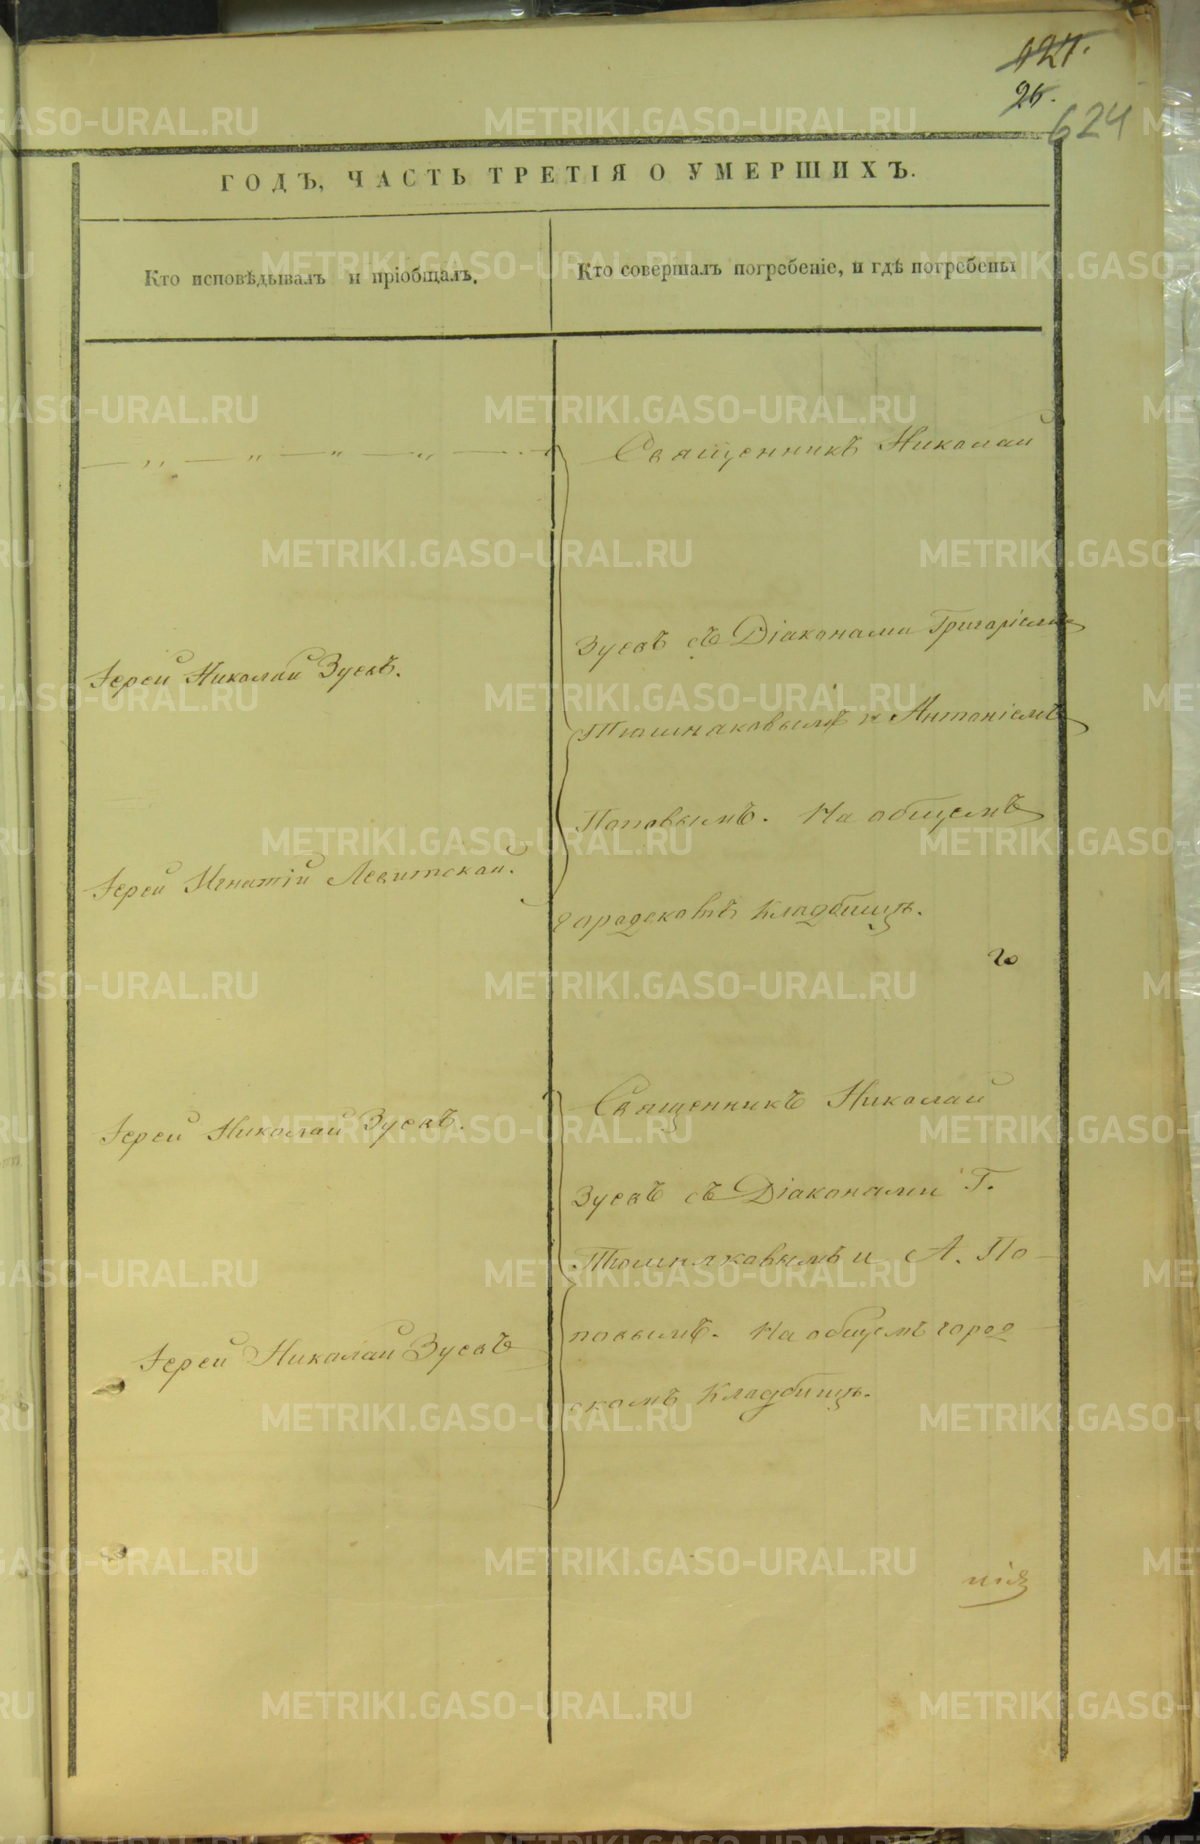 127.
26.
624
ГОДЪ, ЧАСТЬ ТРЕТІЯ О УМЕРШИХЪ.
Кто исповѣдывалъ и пріобщалъ.
Кто совершалъ погребеніе, и гдѣ погребены
— „ — „ — „ — „ — „
Священникъ Николай
Зуевъ съ Діаконами Григоріемъ
Іерей Николай Зуевъ.
Тюшняковымъ и Антоніемъ
Поповымъ. На общемъ
Іерей Игнатій Левитской.
городсковъ Кладбищѣ.
го
Священникъ Николай
Іерей Николай Зуевъ.
Зуевъ съ Діаконами Г.
Тюшняковымъ и А. По-
повымъ. На общемъ город
Іерей Николай Зуевъ
скомъ Кладбищѣ.
нія
METRIKI.GASO-URAL.RU